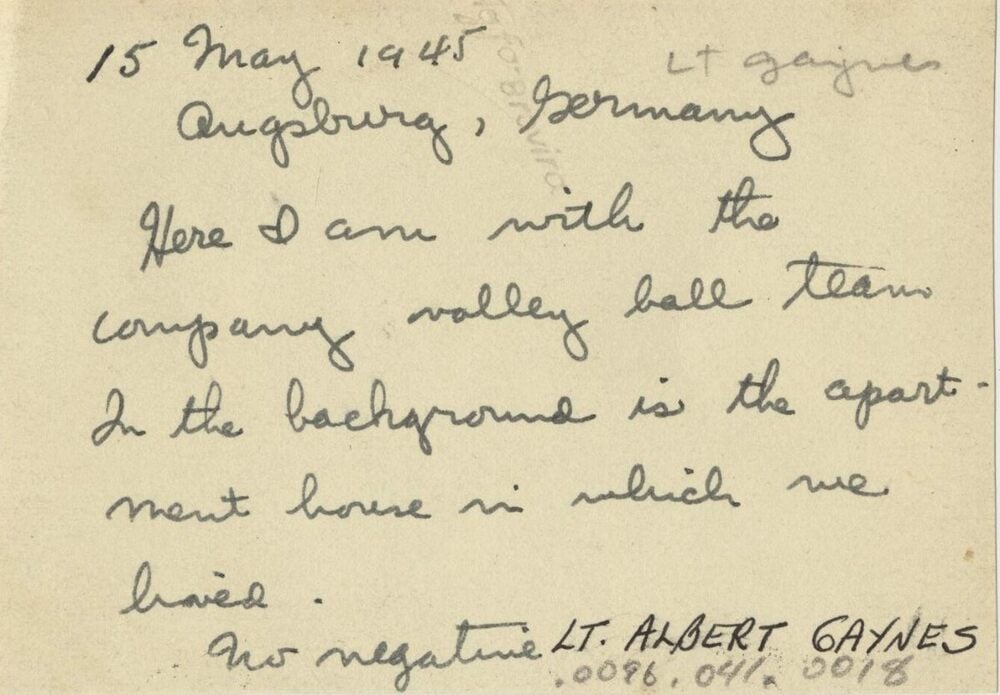 15 May 1945
Lt Gaynes
Augsburg, Germany
Here I am with the
company volley ball team
In the background is the apart-
ment house in which we
lived.
No negative
LT. ALBERT GAYNES
.0096.041.0018